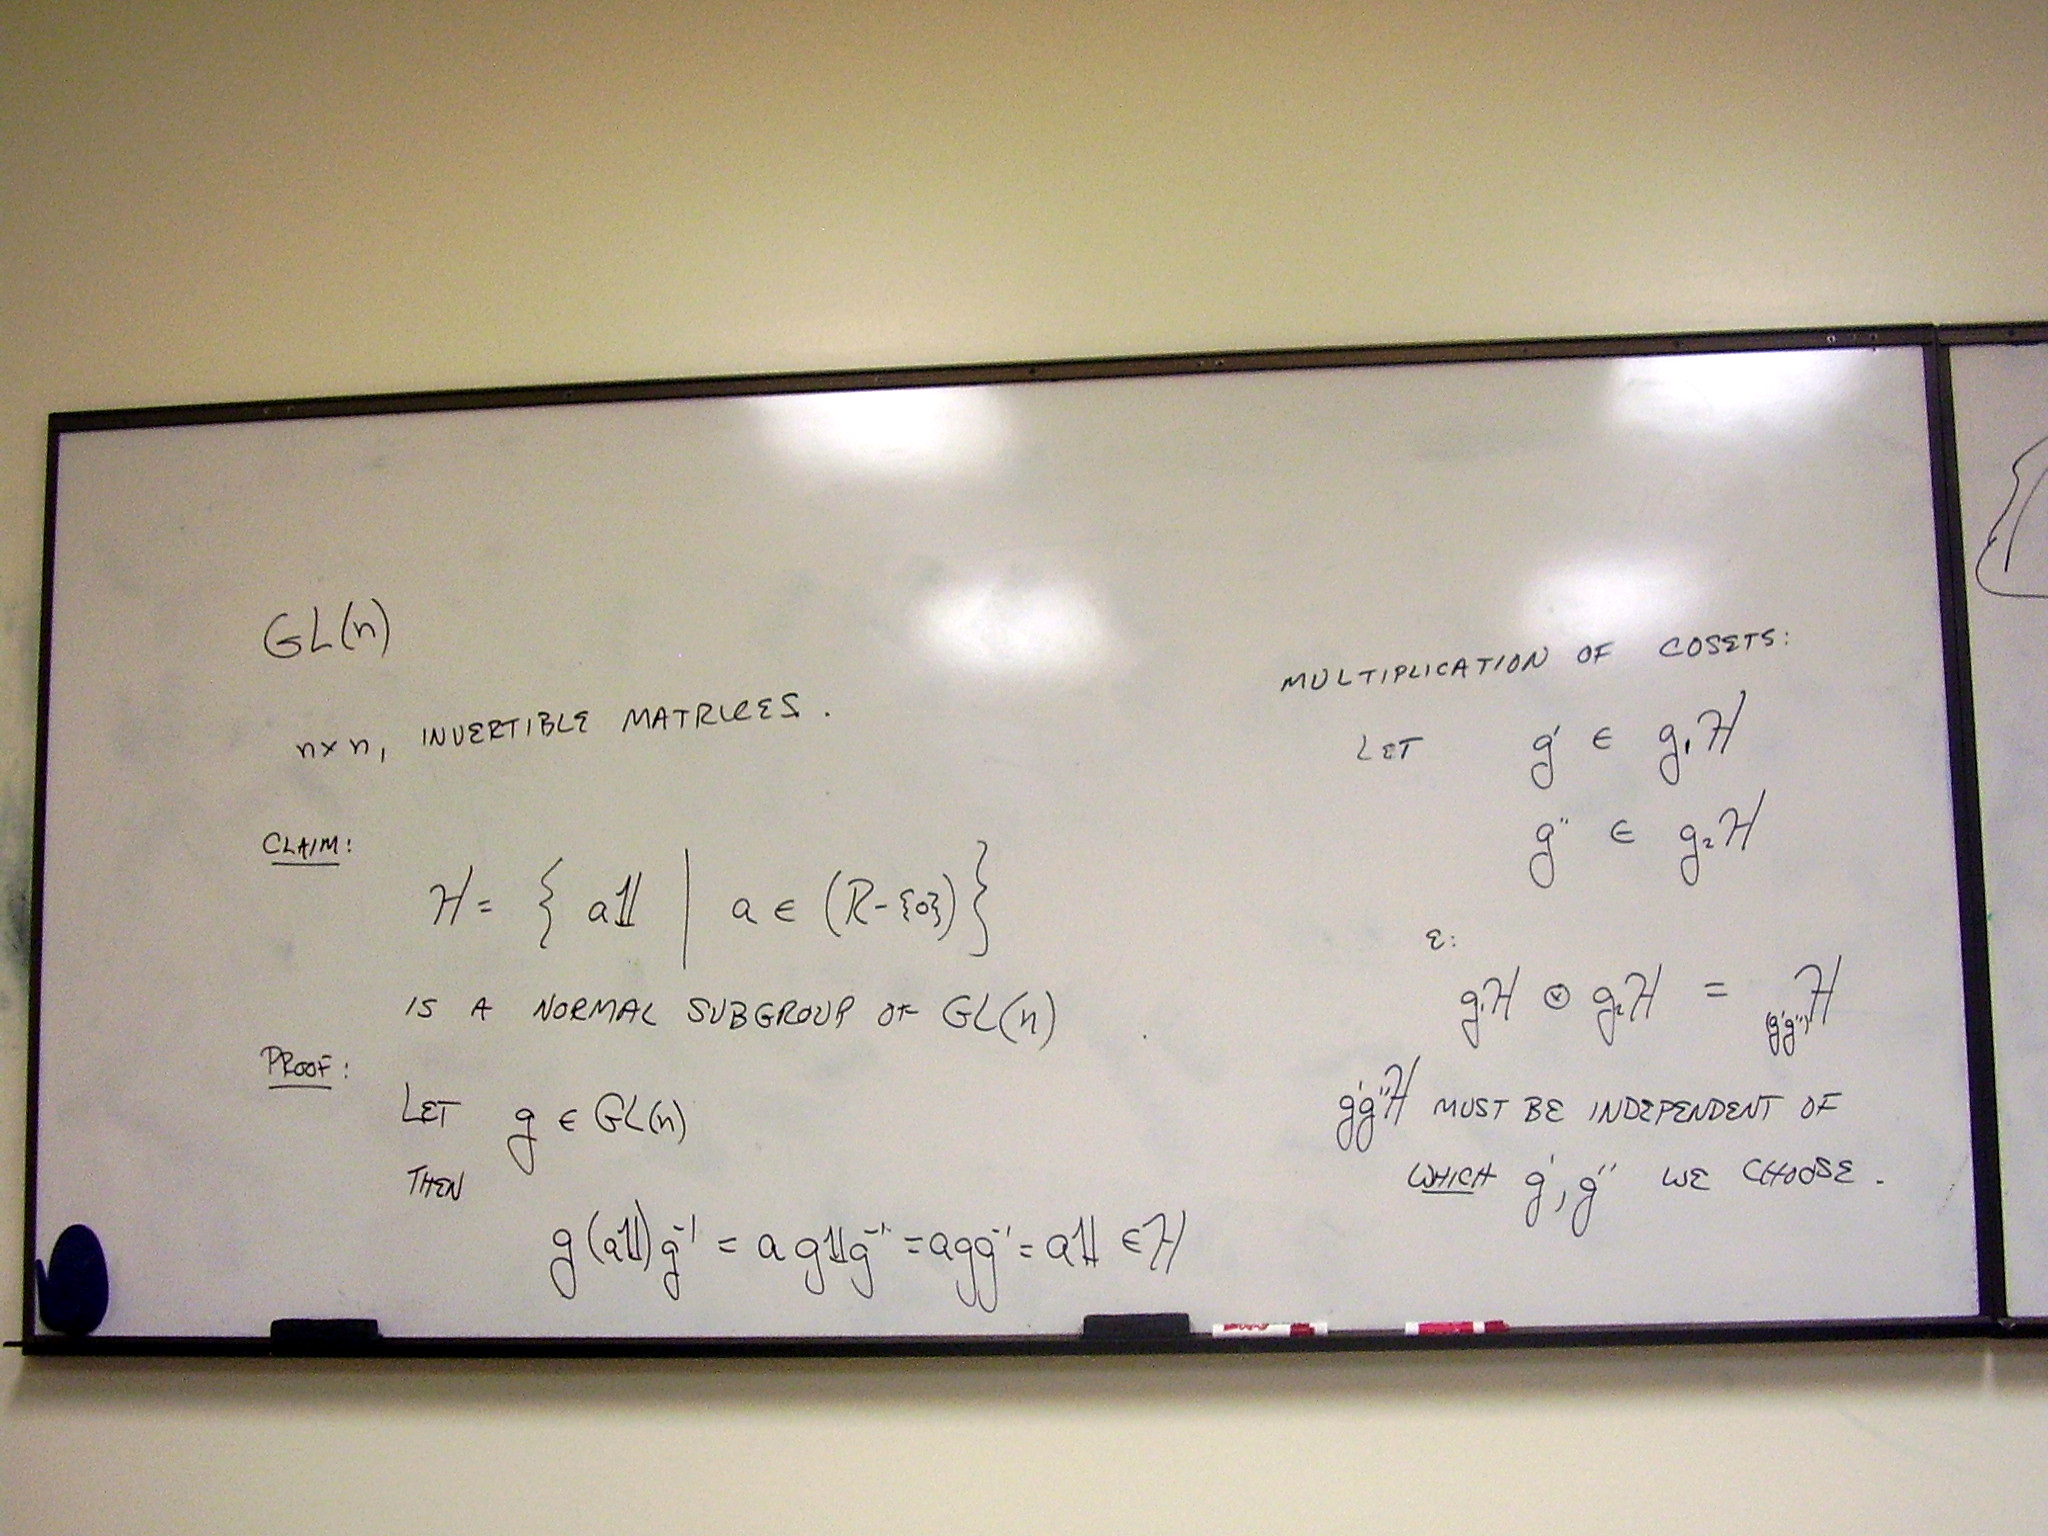 GL(n)
n×n, INVERTIBLE MATRICES.
CLAIM:
H = { a𝟙 | a ∈ (R-{0}) }
IS A NORMAL SUBGROUP OF GL(n)
PROOF:
LET g ∈ GL(n)
THEN
g(a𝟙)g⁻¹ = a g𝟙g⁻¹ = agg⁻¹ = a𝟙 ∈ H
MULTIPLICATION OF COSETS:
LET g' ∈ g₁H
g'' ∈ g₂H
&:
g₁H ⊙ g₂H = (g'g'')H
g'g''H MUST BE INDEPENDENT OF
WHICH g', g'' WE CHOOSE.